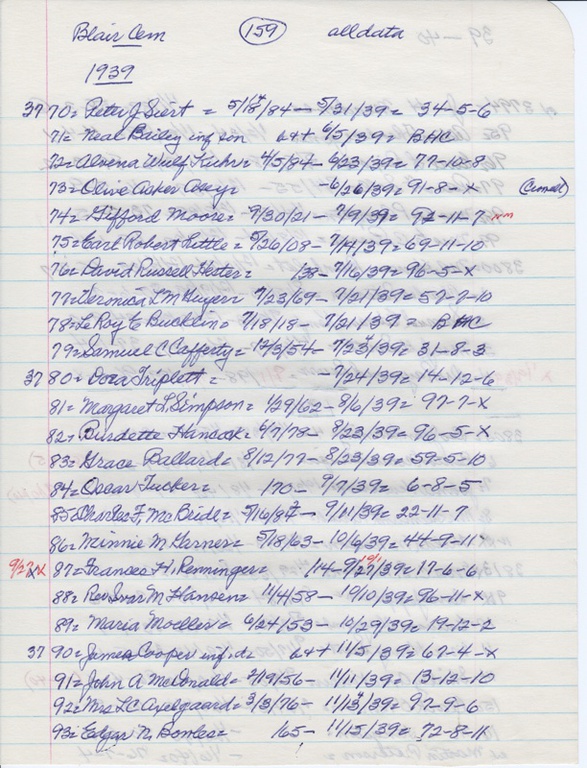 Blair Cem (159) all data
1939
3770= Peter J Siert = 5/18/84 - 5/31/39= 34-5-6
71= Neal Bailey inf son b+d 6/5/39= BHC
72= Alvena Wulf Kuhr= 4/5/84 - 6/23/39= 77-10-8
73= Olive Asher -6/26/39= 91-8-X (Cumed)
74= Gifford Moore= 9/30/21 - 7/9/39= 92-11-7 nm
75= Earl Robert Little= 5/26/08 - 7/14/39= 69-11-10
76= David Russell Hetter= /38 - 7/16/39= 96-5-X
77= Veronica L M Huyer= 7/23/69 - 7/21/39= 57-7-10
78= Le Roy E Bucklin= 7/18/18 - 7/21/39= BHC
79= Samuel C Cafferty= 12/3/54 - 7/23/39= 31-8-3
3780= Cora Triplett= -7/24/39= 14-12-6
81= Margaret L Simpson= 1/29/62 - 8/6/39= 97-7-X
82= Burdette Hancock= 4/7/78 - 8/23/39= 96-5-X
83= Grace Ballard= 8/12/77 - 8/23/39= 59-5-10
84= Oscar Tucker= /70 - 9/7/39= 6-8-5
85= Charles F, McBride= 5/16/87 - 9/11/39= 22-11-7
86= Minnie M Garner= 5/18/63 - 10/6/39= 44-9-11X
9/27 X 87= Frances H. Renninger= /14 - 9/27/39= 17-6-6 10/1
88= Rev Ivar M Hansen= 11/4/58 - 10/10/39= 96-11-X
89= Maria Moeller= 6/24/53 - 10/29/39= 19-12-2
3790= James Cooper inf.d= b+d 11/5/39= 67-4-X
91= John A McDonald= 2/19/56 - 11/11/39= 13-12-10
92= Mrs L C Axelgaard= 3/3/76 - 11/13/39= 97-9-6
93= Edgar N, Bowles= /65 - 11/15/39= 72-8-11